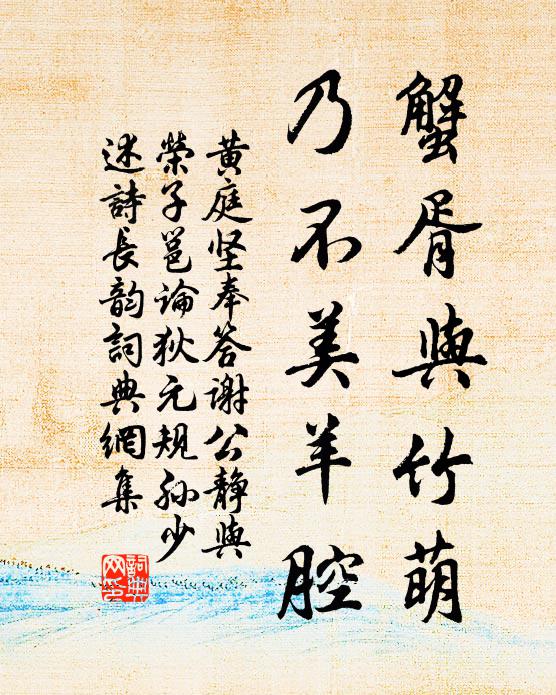 蟹胥與竹萌
乃不美羊腔
黄庭坚奉答谢公静與
榮子邕论狄元规孙少
述詩長韵詞典網集
詞典网